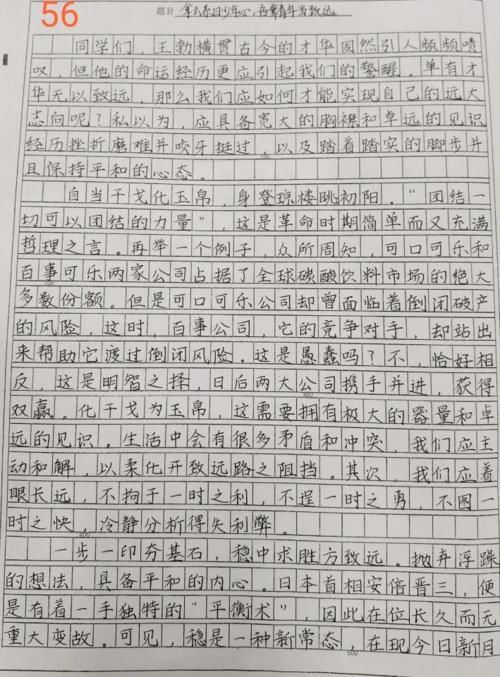 56
题目 拿久春日少年心，吾辈青年当致远
同学们，王勃横贯古今的才华固然引人频频啧
叹，但他的命运经历更应引起我们的警醒。单有才
华无以致远，那么我们应如何才能实现自己的远大
志向呢？私以为，应具备宽大的胸襟和卓远的见识
经历挫折磨难并咬牙挺过，以及踏着踏实的脚步并
且保持平和的心态。
自当干戈化玉帛，身登琼楼眺初阳。“团结一
切可以团结的力量”，这是革命时期简单而又充满
哲理之言。再举一个例子，众所周知，可口可乐和
百事可乐两家公司占据了全球碳酸饮料市场的绝大
多数份额。但是可口可乐公司却曾面临着倒闭破产
的风险，这时，百事公司，它的竞争对手，却站出
来帮助它渡过倒闭风险。这是愚蠢吗？不，恰好相
反，这是明智之择，日后两大公司携手并进，获得
双赢。化干戈为玉帛，这需要拥有极大的器量和卓
远的见识。生活中会有很多矛盾和冲突，我们应主
动和解，以柔化开致远路之阻挡。其次，我们应着
眼长远，不拘于一时之利，不逞一时之勇，不图一
时之快，冷静分析得失利弊。
一步一印夯基石，稳中求胜方致远。抛弃浮躁
的想法，具备平和的内心。日本首相安倍晋三，便
是有着一手独特的“平衡术”，因此在位长久而无
重大变故。可见，稳是一种新常态，在现今日新月